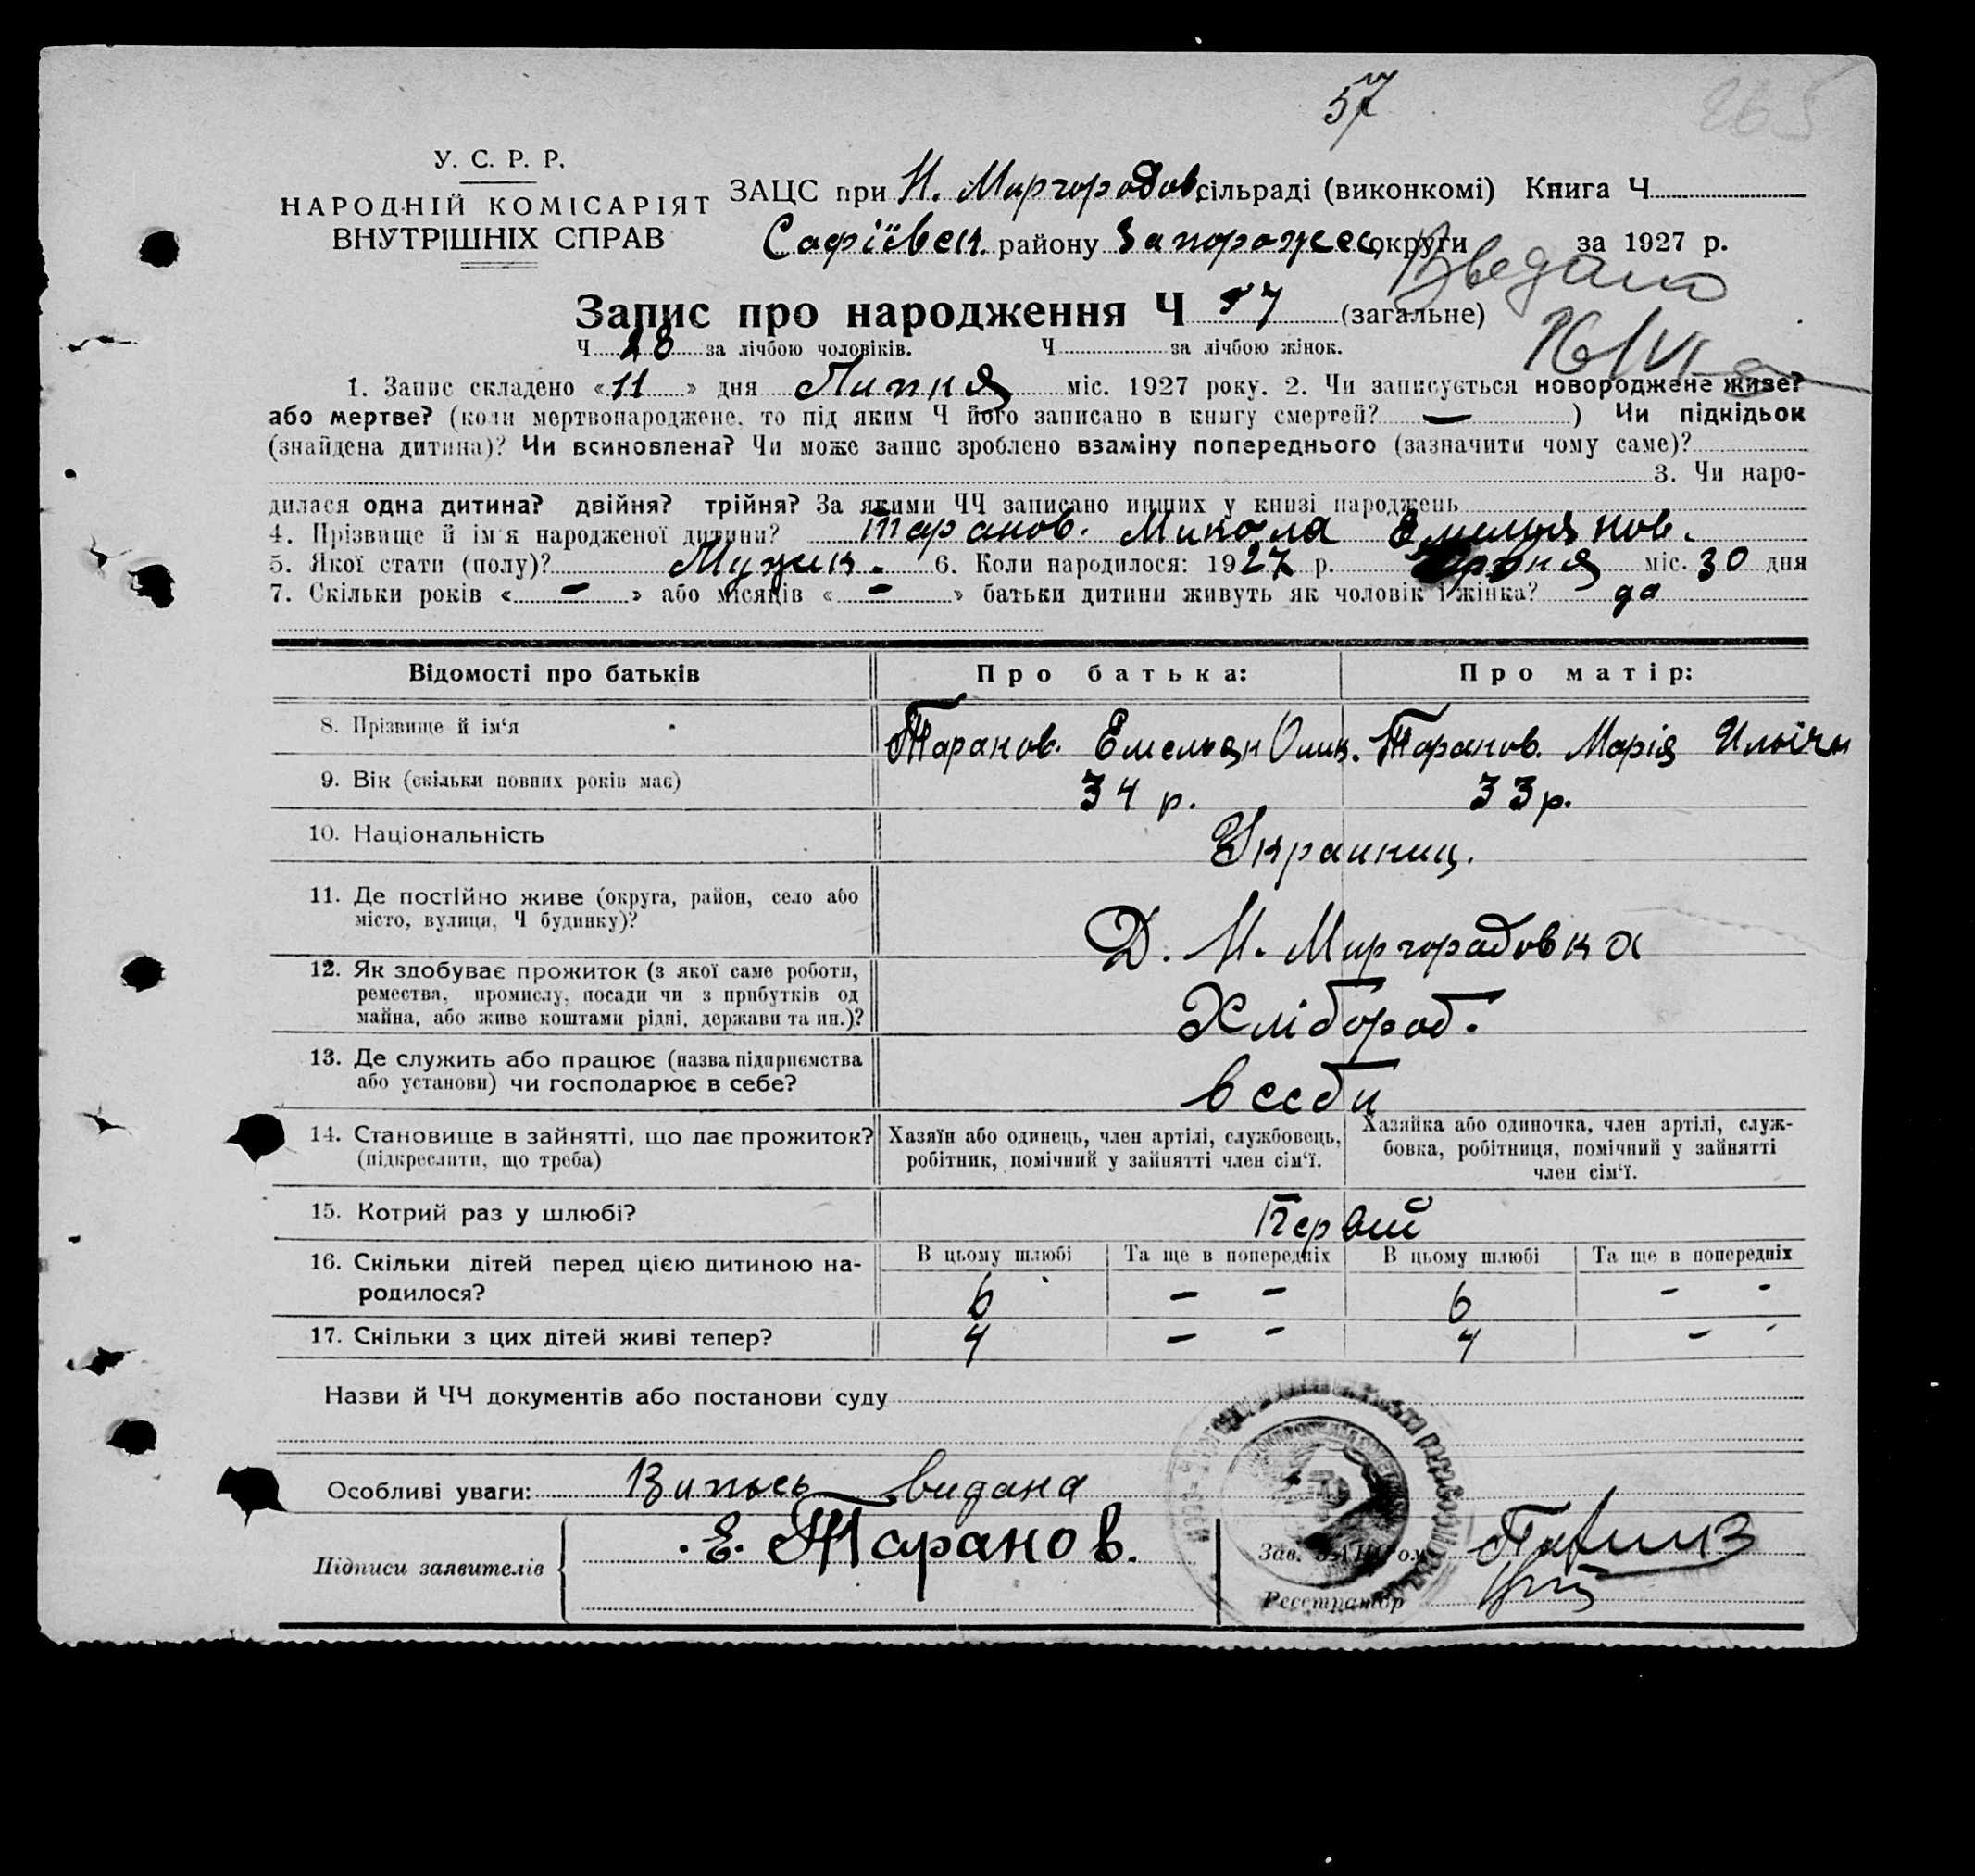 57
265
У. С. Р. Р.
НАРОДНІЙ КОМІСАРІЯТ
ВНУТРІШНІХ СПРАВ
ЗАЦС при Н. Миргородов. сільраді (виконкомі) Книга Ч
Софіївск. району Запорожск. округи за 1927 р.
Введено
Запис про народження Ч 57 (загальне)
16/VI
Ч 28 за лічбою чоловіків. Ч за лічбою жінок.
1. Запис складено «11» дня Липня міс. 1927 року. 2. Чи записується новороджене живе?
або мертве? (коли мертвонароджене, то під яким Ч його записано в книгу смертей? — ) Чи підкідьок
(знайдена дитина)? Чи всиновлена? Чи може запис зроблено взаміну попереднього (зазначити чому саме)?
3. Чи наро-
дилася одна дитина? двійня? трійня? За якими ЧЧ записано инших у книзі народжень
4. Прізвище й ім'я народженої дитини? Таранов. Микола Емельянов.
5. Якої стати (полу)? Мужск. 6. Коли народилося: 1927 р. Червня міс. 30 дня
7. Скільки років « – » або місяців « – » батьки дитини живуть як чоловік і жінка? да
Відомості про батьків Про батька: Про матір:
8. Прізвище й ім'я Таранов. Емельян Таранов. Марія Ильічн
9. Вік (скільки повних років має) 34 р. 33 р.
10. Національність Украинц.
11. Де постійно живе (округа, район, село або
місто, вулиця, Ч будинку)?
Д. Н. Миргорадовка
12. Як здобуває прожиток (з якої саме роботи,
ремества, промислу, посади чи з прибутків од
майна, або живе коштами рідні, держави та ин.)?
Хлібороб.
13. Де служить або працює (назва підприємства
або установи) чи господарює в себе?
в себи
14. Становище в зайнятті, що дає прожиток?
(підкреслити, що треба)
Хазяїн або одинець, член артілі, службовець,
робітник, помічний у зайнятті член сім'ї.
Хазяйка або одиночка, член артілі, служ-
бовка, робітниця, помічний у зайнятті
член сім'ї.
15. Котрий раз у шлюбі? Первий
16. Скільки дітей перед цією дитиною на-
родилося?
В цьому шлюбі Та ще в попередніх В цьому шлюбі Та ще в попередніх
6 – – 6 – –
17. Скільки з цих дітей живі тепер? 4 – – 4 – –
Назви й ЧЧ документів або постанови суду
Особливі уваги: Випись видана
Підписи заявителів
Е. Таранов.
Зав. ЗАЦС'ом
Реєстратор